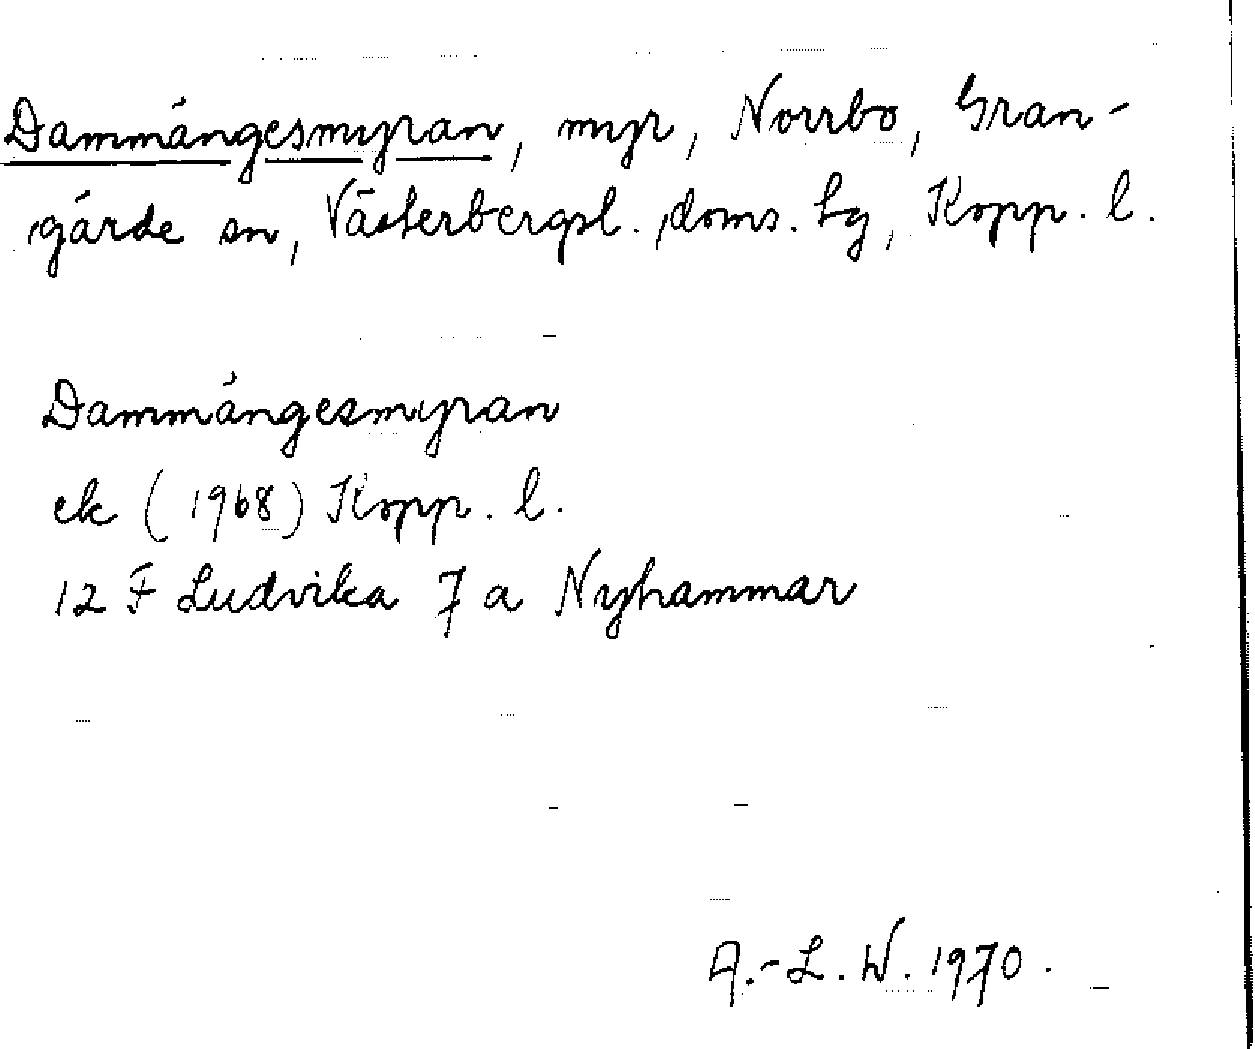 Dammängesmyran, myr, Norrbo, Gran-
gärde sn, Västerbergsl. doms. tg, Kopp. l.
Dammängesmyran
ek (1968) Kopp. l.
12 F Ludvika 7 a Nyhammar
A.-L. W. 1970.